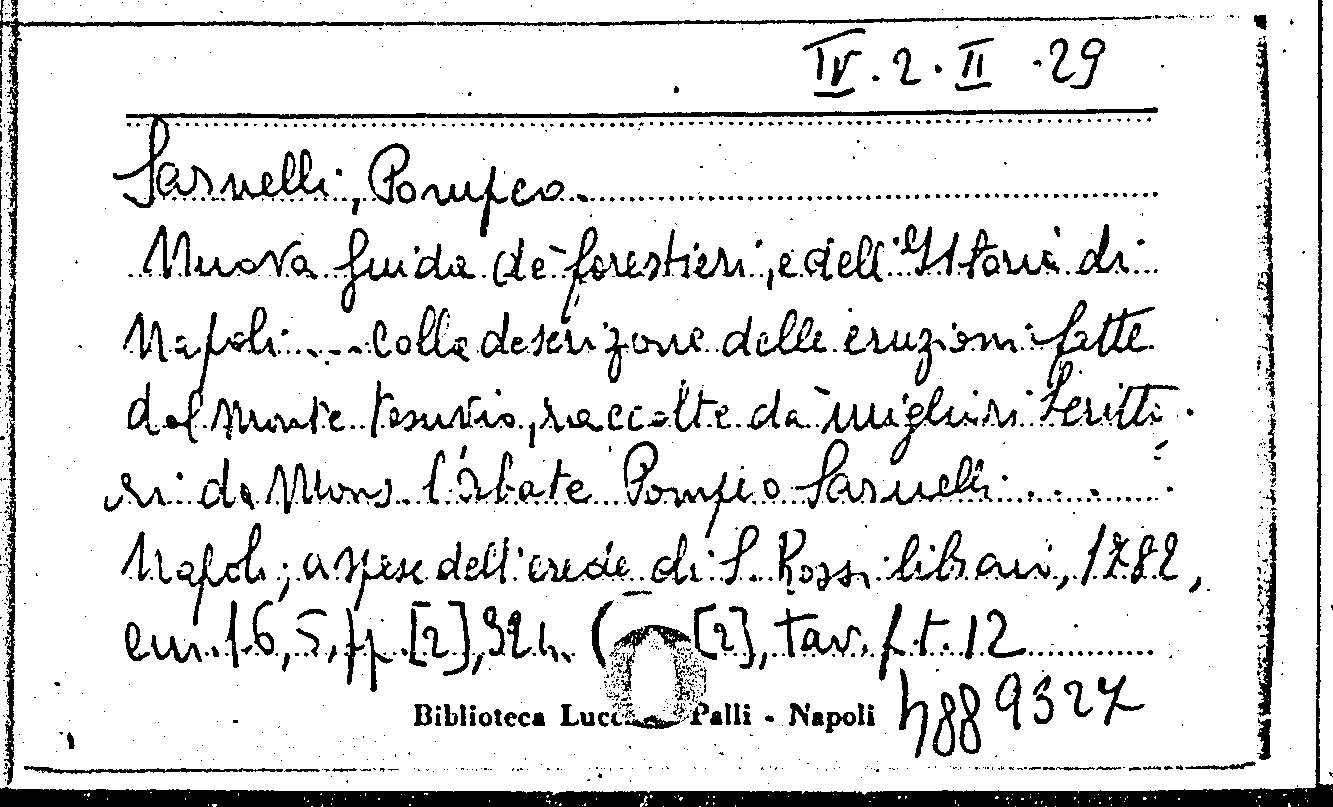 IV. 2. II . 29
Sarnelli, Pompeo.
Nuova guida de' forestieri, e dell'Istoria di
Napoli ... colla descrizione delle eruzioni fatte
dal Monte Vesuvio, raccolte da' migliori Scritto=
ri da Mons. l'Abate Pompeo Sarnelli ....
Napoli; a spese dell'erede di S. Rossi librari, 1782,
cm. 16,5, pp. [2], [2], tav. f.t. 12
Biblioteca Palli - Napoli